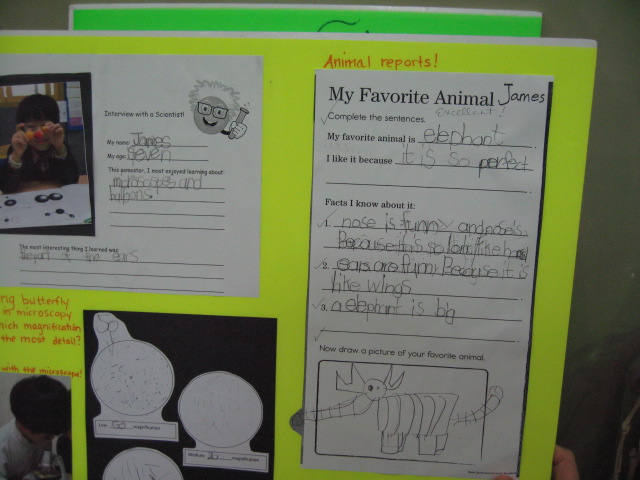 Animal reports!
My Favorite Animal James
Excellent!
Complete the sentences.
My favorite animal is elephant.
I like it because it is so perfect
Facts I know about it:
1. nose is funny and nose is
Because it is so long like hand
2. ears are funny Because it is
like wings
3. a elephant is big
Now draw a picture of your favorite animal.
Interview with a Scientist!
My name: James
My age: seven
This semester, I most enjoyed learning about:
microscopes and
The most interesting thing I learned was
the ears
ng butterfly
in microscopy
hich magnification
the most detail?
with the microscope!
Low 60 magnification
Medium magnification